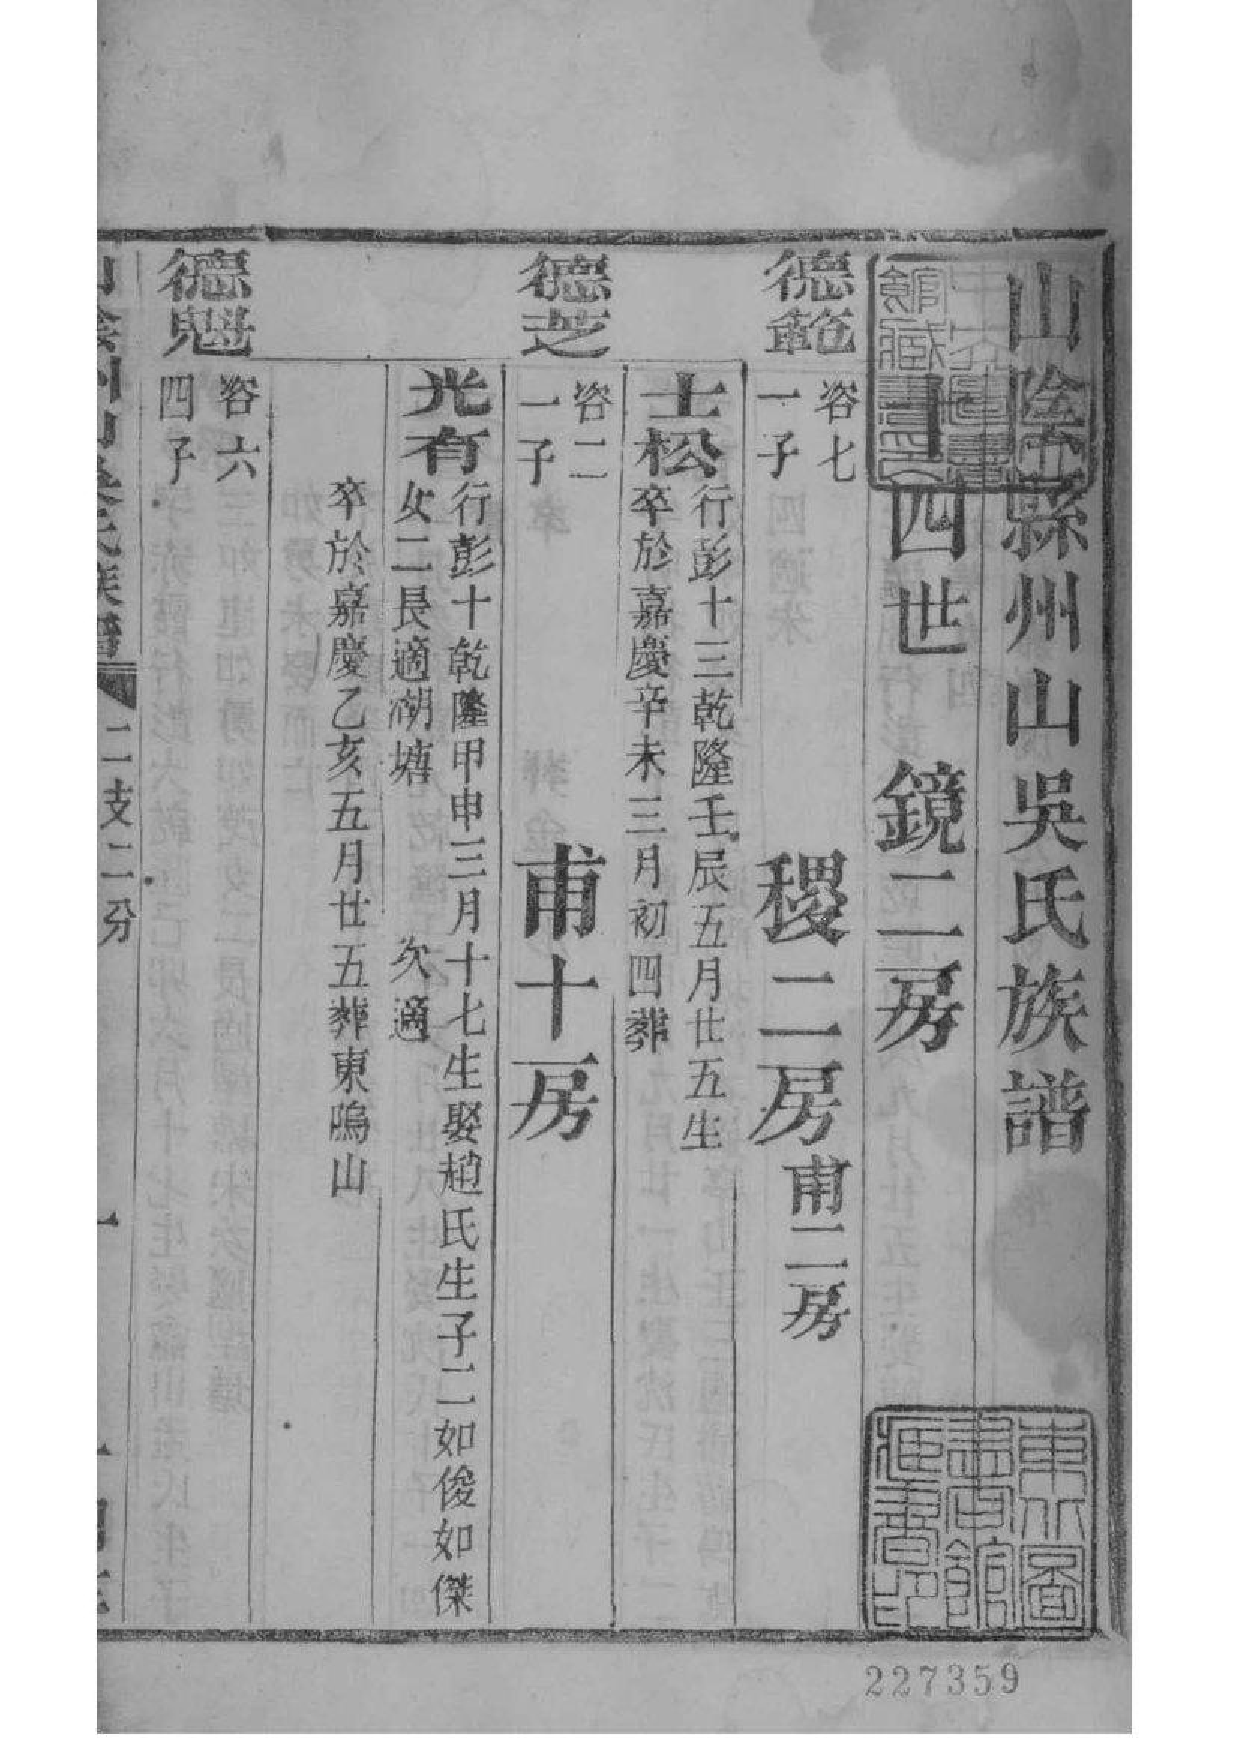 山陰縣州山吳氏族譜
十四世 鏡二房
稷二房 甫二房
德範 容七
一子
士松 行彭十三乾隆壬辰五月廿五生
卒於嘉慶辛未三月初四葬
甫十一房
德芝 容二
一子
光有 行彭十乾隆甲申三月十七生娶趙氏生子二如俊如傑
女二長適湖塘 次適
卒於嘉慶乙亥五月廿五葬東塢山
德魁 容六
四子
二支二分
227359